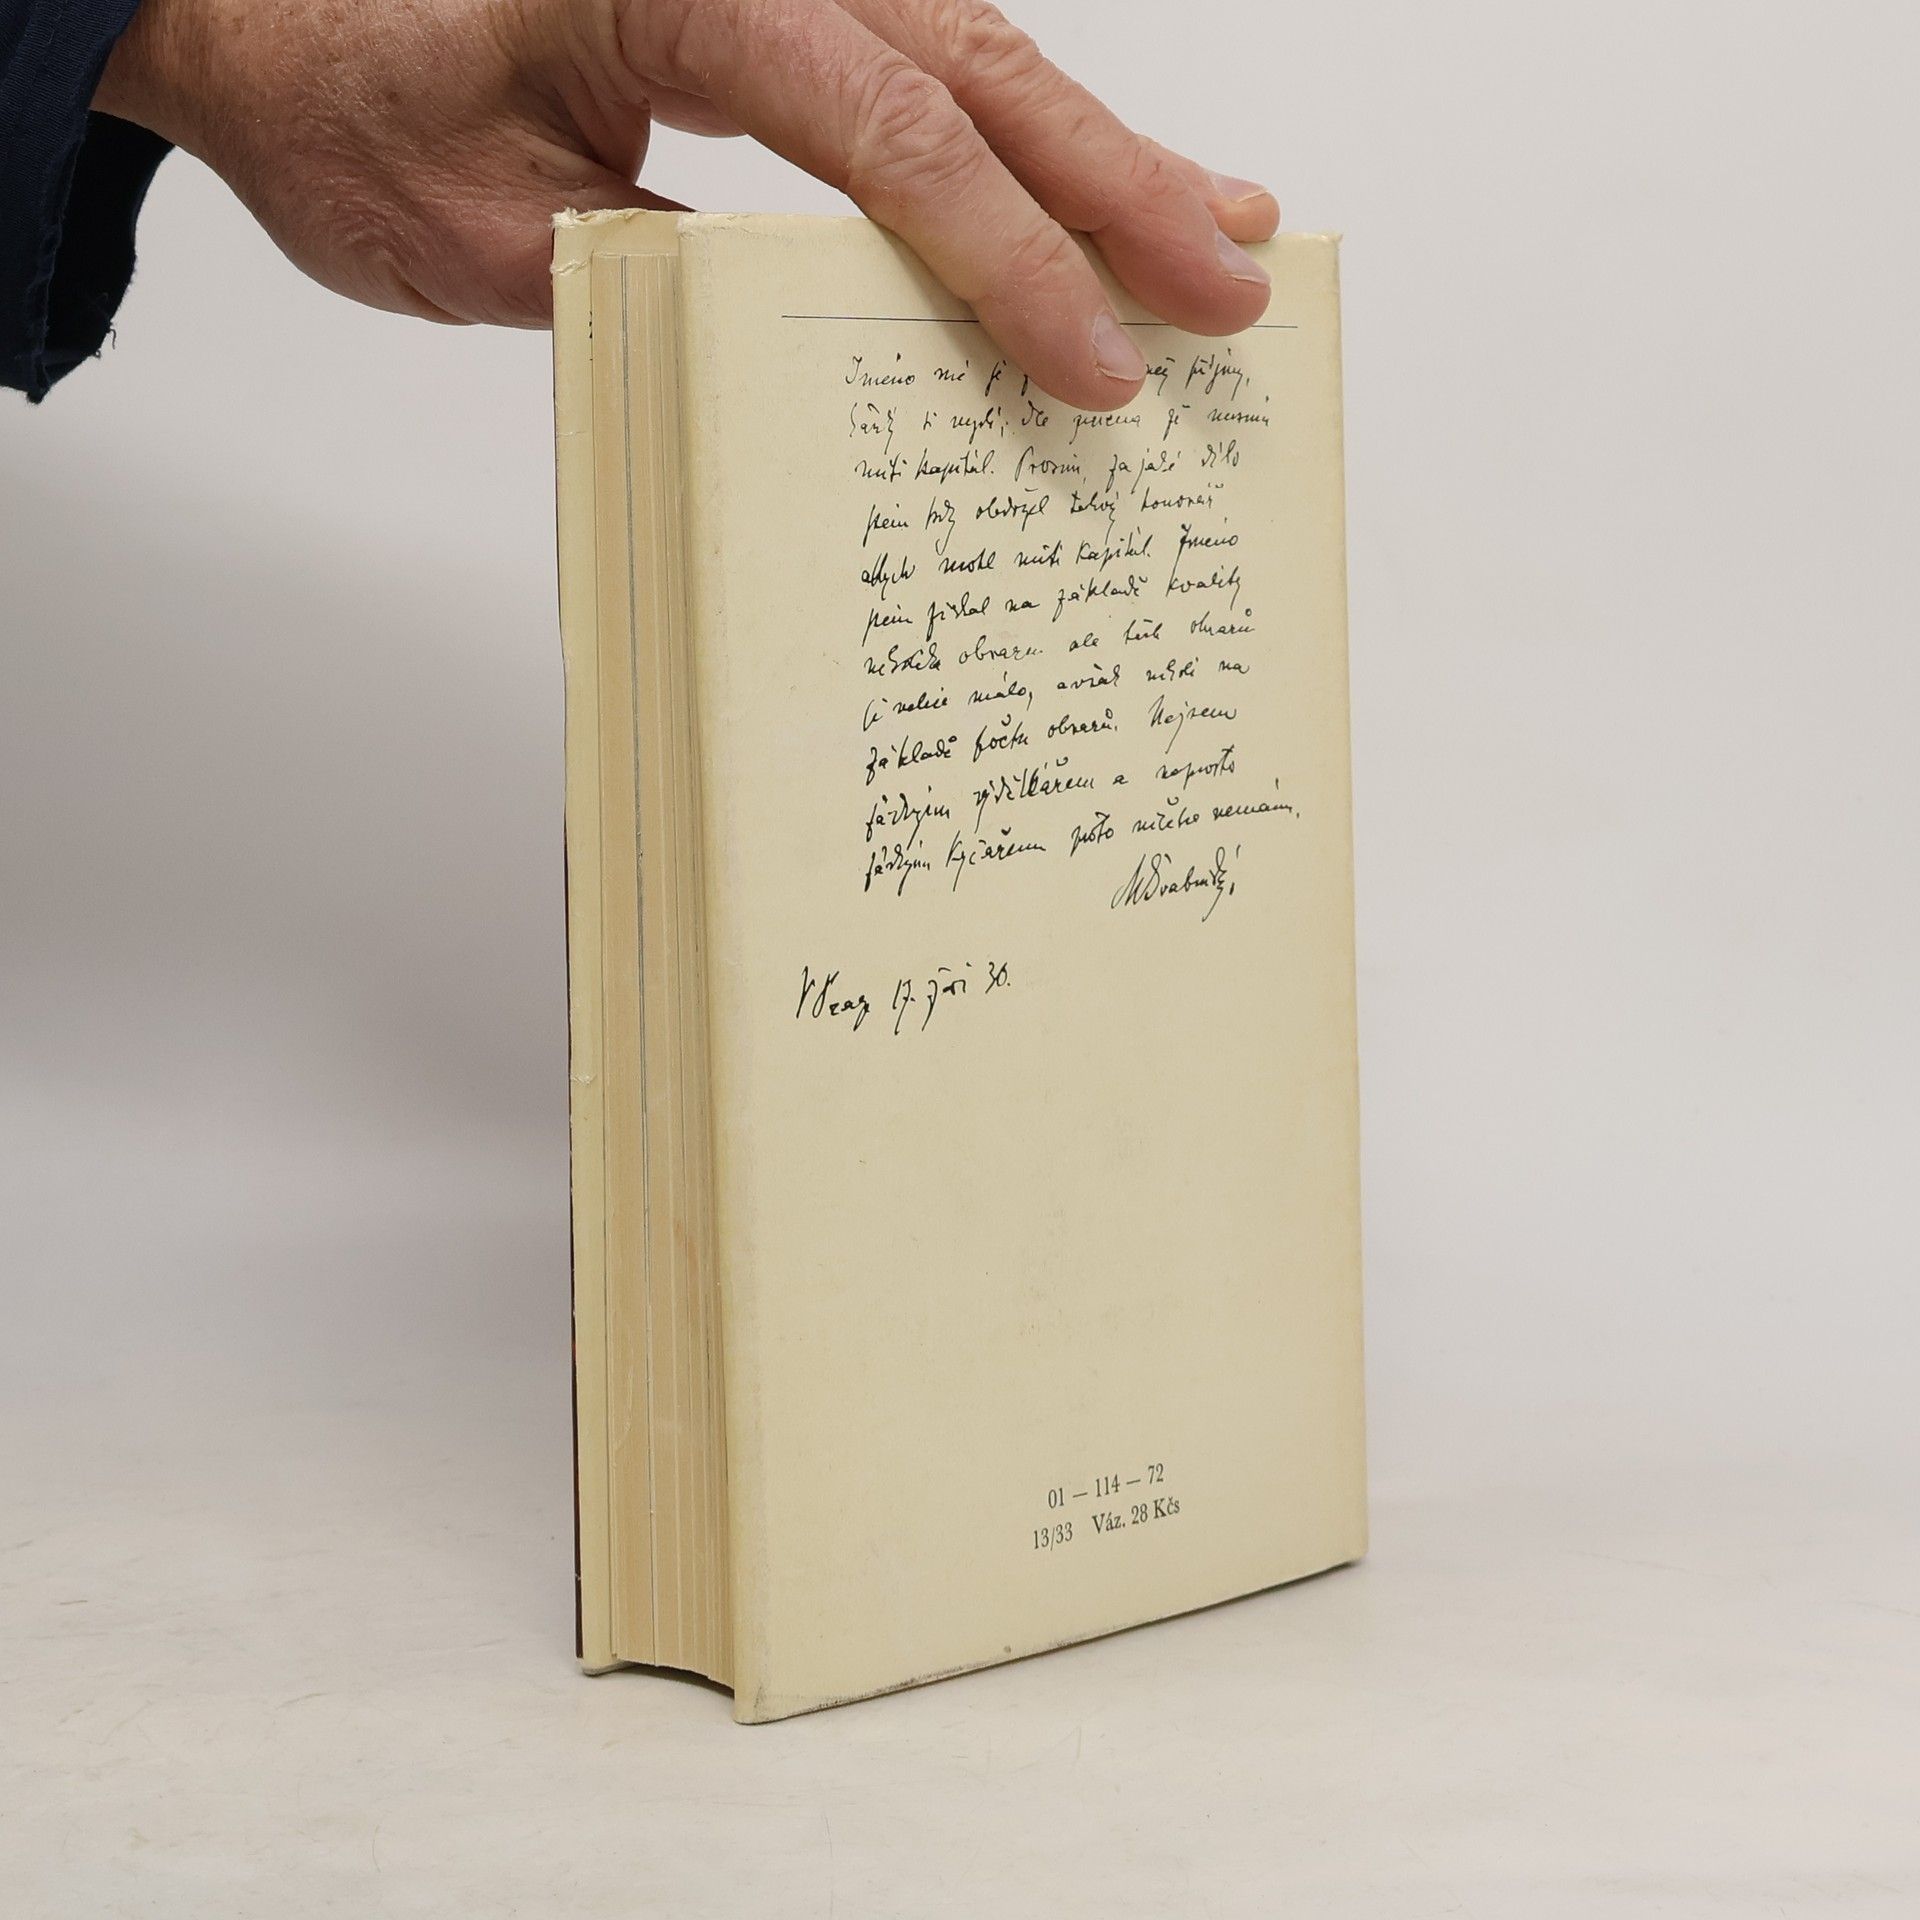 Jméno mé je příjmy,
každý si myslí, dle jména že musím
míti kapitál. Prosím, za jaké dílo
jsem kdy obdržel takový honorář
abych mohl míti kapitál. Jméno
jsem získal na základě kvality
několika obrazů ale těch obrazů
je velice málo, avšak nikoli na
základě počtu obrazů. Nejsem
žádným výdělkářem a naprosto
žádným kýčařem proto ničeho nemám.
MŠvabinský
V Praze 17. září 30.
01 — 114 — 72
13/33 Váz. 28 Kčs